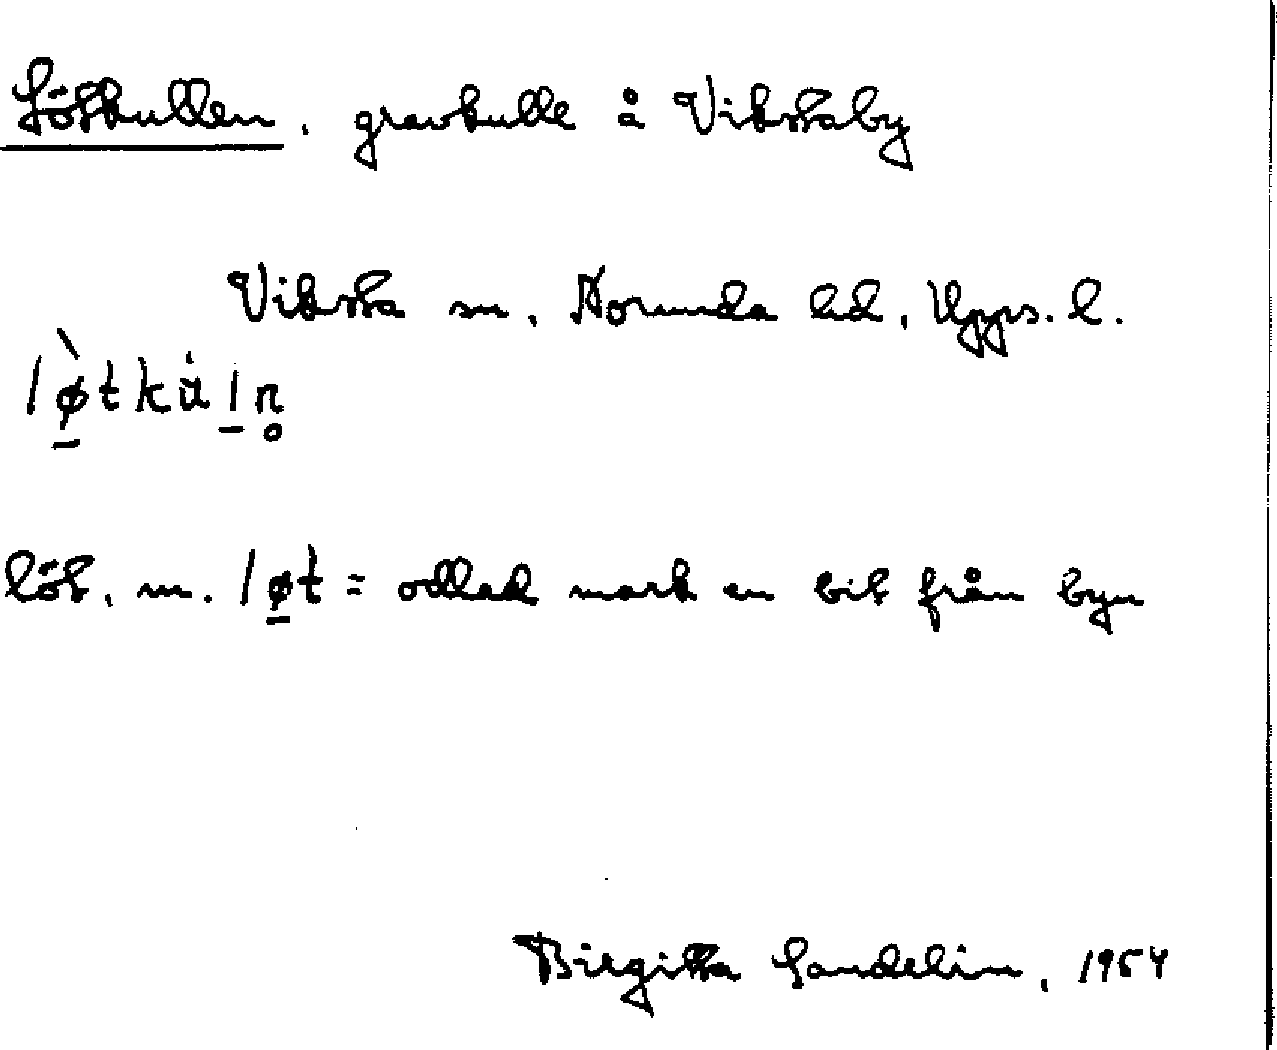 Lötkullen, gravkulle å Vikstaby
Viksta sn, Norunda hd, Upps. l.
lø̀tkùln̥
löt, m. løt = odlad mark en bit från byn
Birgitta Sandelin, 1954